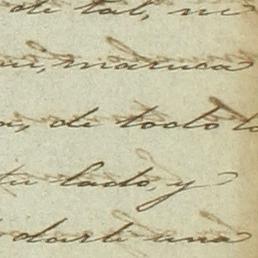 de tal, ni
manera
de todo lo
lado, y
darle una